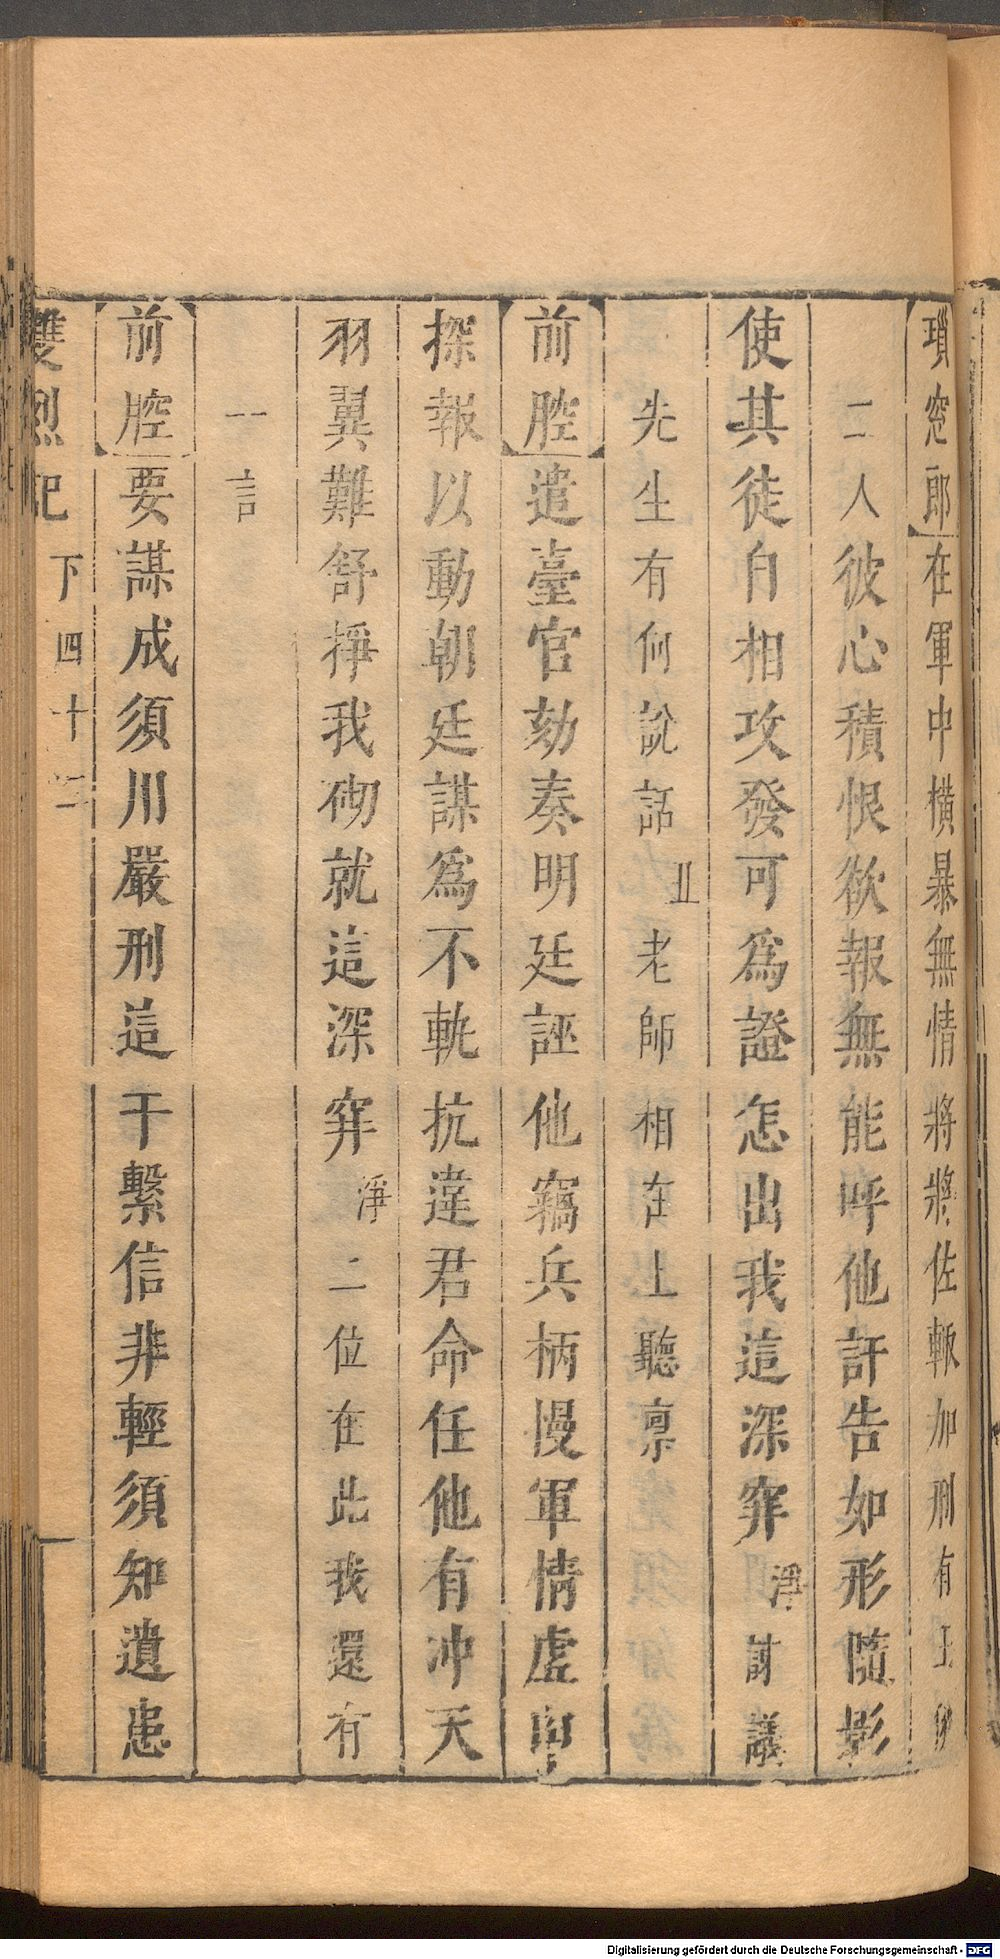 瑣窓郎在軍中橫暴無情將將佐輙加刑有王
二人彼心積恨欲報無能呼他訐告如形隨影
使其徒自相攻發可爲證怎出我這深穽淨計議
先生有何說話丑老師相在上聽稟
前腔遣臺官劾奏明廷誣他竊兵柄慢軍情虛
探報以動朝廷謀爲不軌抗違君命任他有冲天
羽翼難舒掙我砌就這深穽淨二位在此我還有
一言
前腔要謀成須用嚴刑這干繫信非輕須知遺患
雙烈記下四十二
Digitalisierung gefördert durch die Deutsche Forschungsgemeinschaft - DFG